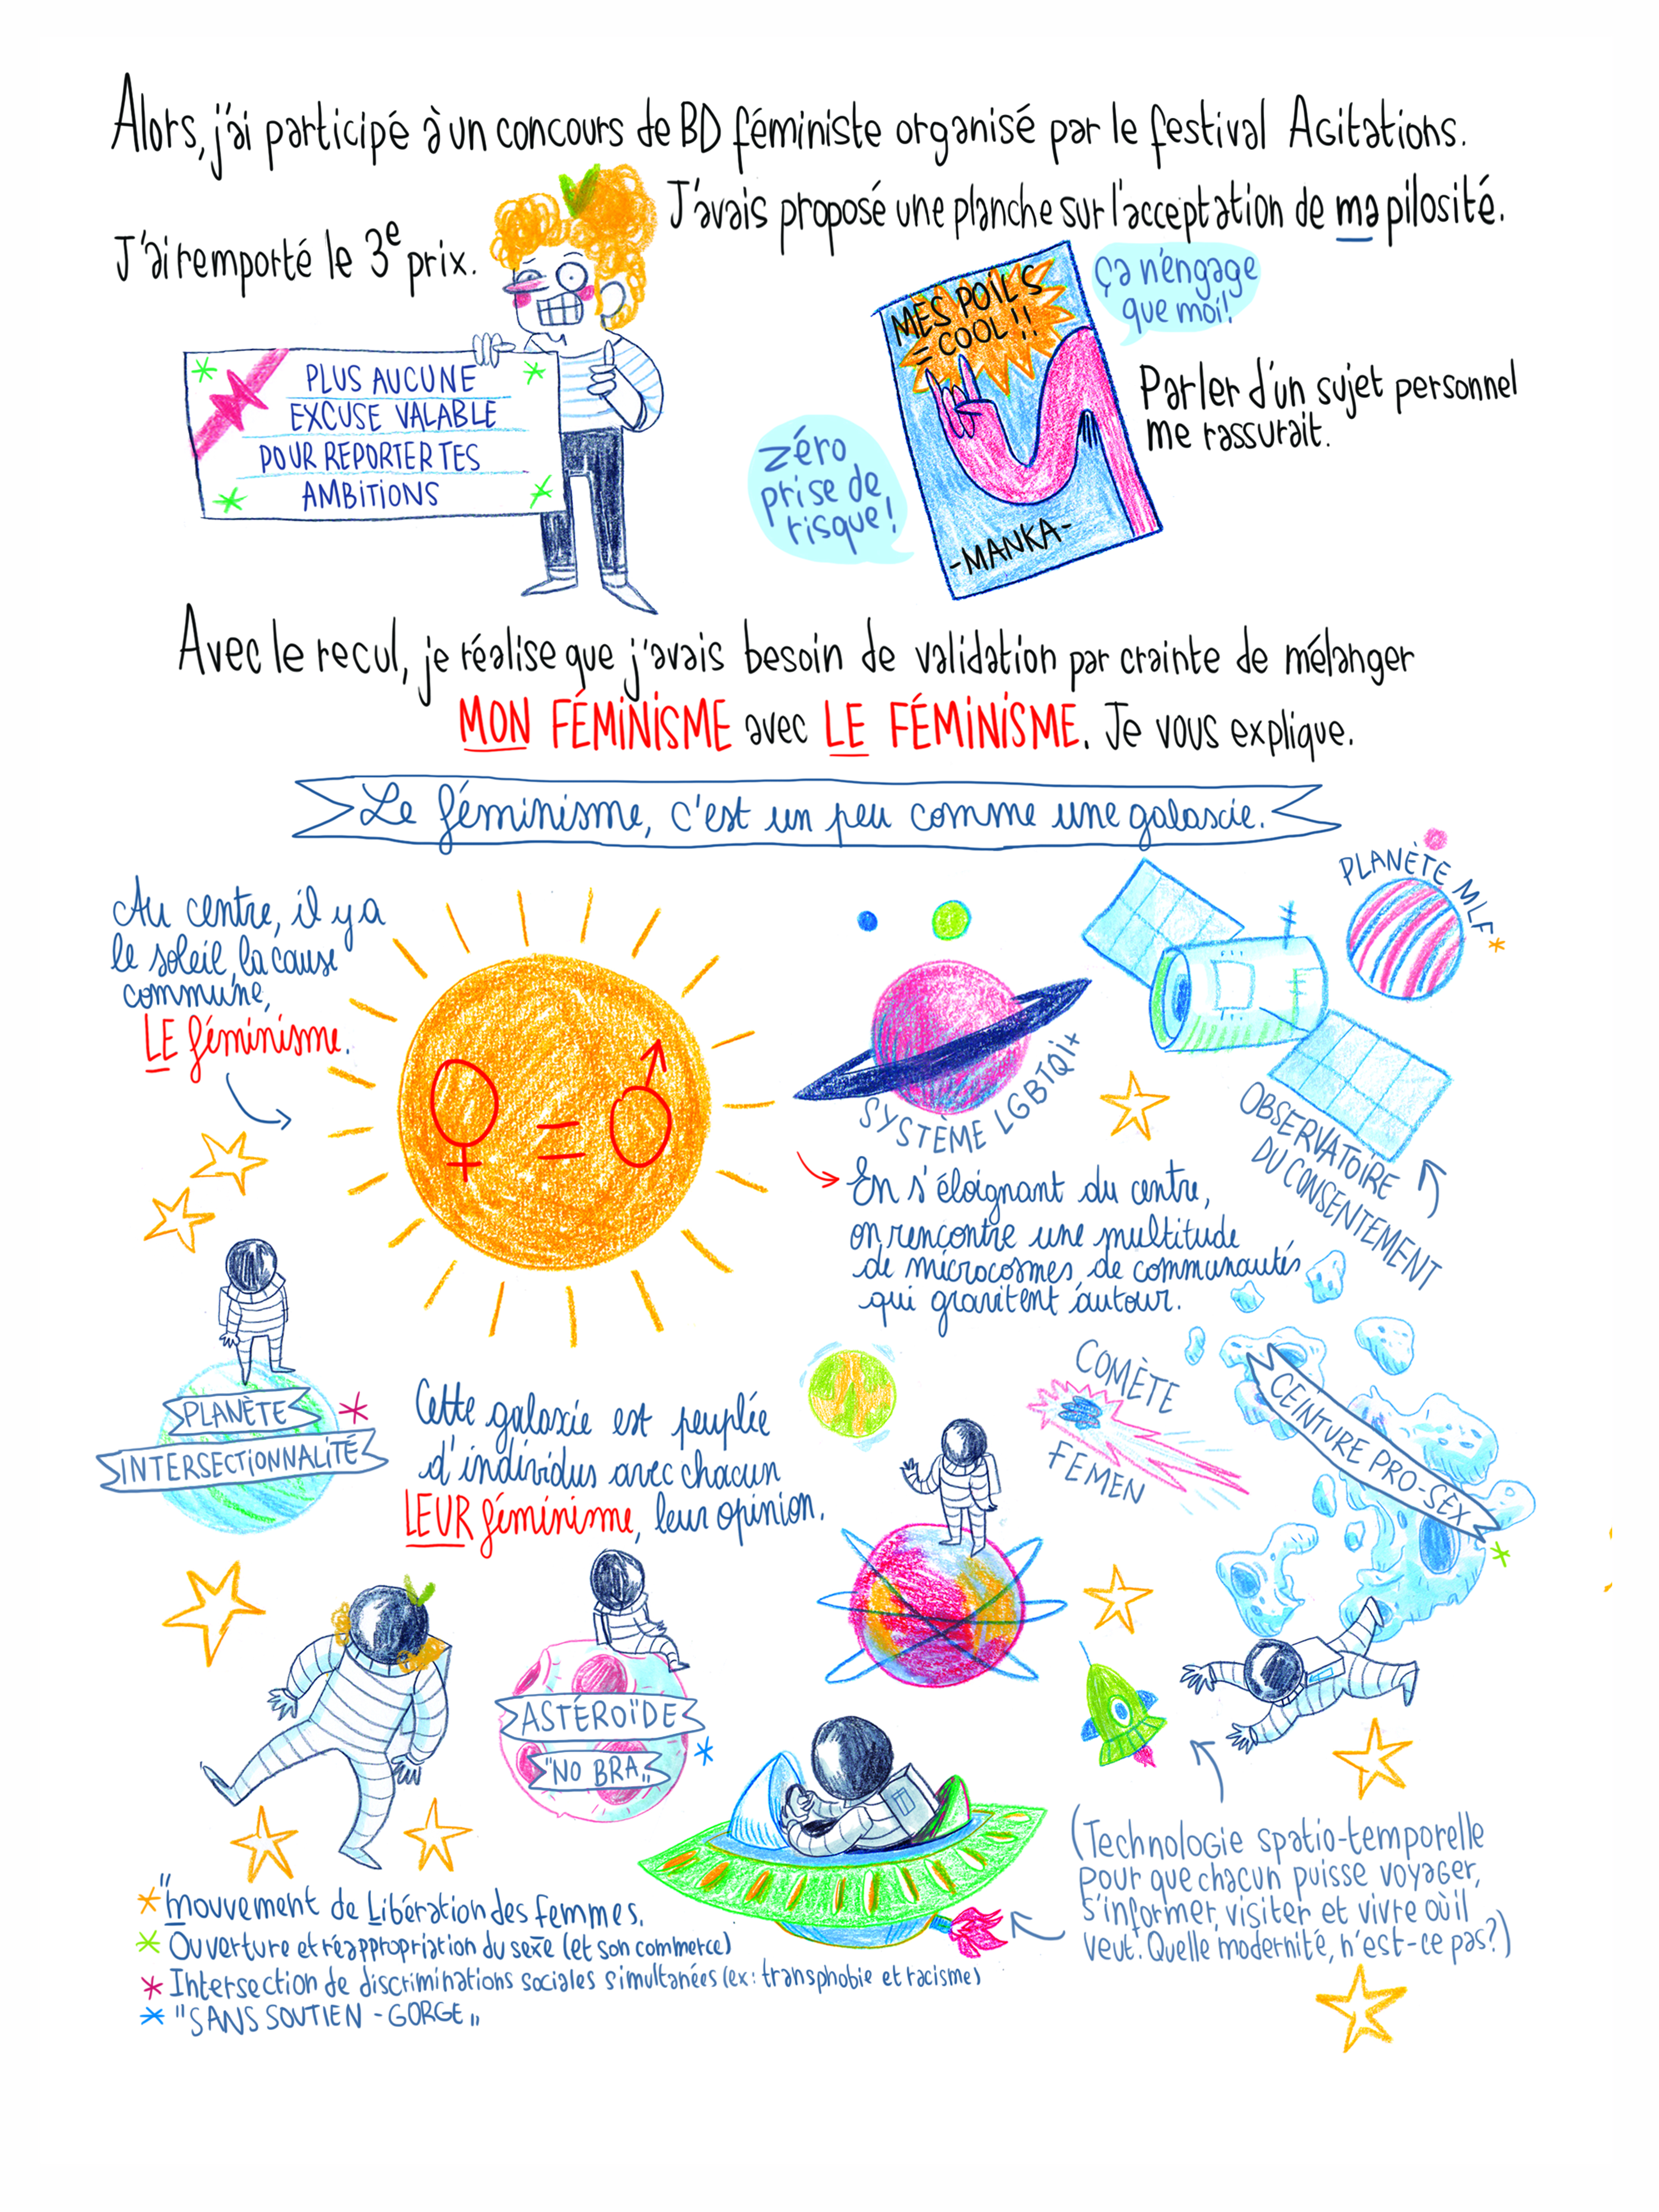 Alors, j'ai participé à un concours de BD féministe organisé par le festival Agitations.
J'ai remporté le 3e prix.
J'avais proposé une planche sur l'acceptation de ma pilosité.
PLUS AUCUNE
EXCUSE VALABLE
POUR REPORTER TES
AMBITIONS
MES POILS
= COOL !!
-MANKA-
Ça n'engage
que moi!
zéro
prise de
risque!
Parler d'un sujet personnel
me rassurait.
Avec le recul, je réalise que j'avais besoin de validation par crainte de mélanger
MON FÉMINISME avec LE FÉMINISME. Je vous explique.
Le féminisme, c'est un peu comme une galaxie.
Au centre, il y a
le soleil, la cause
commune,
LE féminisme.
♀ = ♂
SYSTÈME LGBTQI+
PLANÈTE MLF*
OBSERVATOIRE
DU CONSENTEMENT
En s'éloignant du centre,
on rencontre une multitude
de microcosmes, de communautés
qui gravitent autour.
PLANÈTE *
INTERSECTIONNALITÉ
Cette galaxie est peuplée
d'individus avec chacun
LEUR féminisme, leur opinion.
COMÈTE
FEMEN
CEINTURE PRO-SEX *
ASTÉROÏDE
"NO BRA" *
(Technologie spatio-temporelle
pour que chacun puisse voyager,
s'informer, visiter et vivre où il
veut. Quelle modernité, n'est-ce pas?)
* "Mouvement de Libération des Femmes.
* Ouverture et réappropriation du sexe (et son commerce)
* Intersection de discriminations sociales simultanées (ex: transphobie et racisme)
* "SANS SOUTIEN-GORGE"